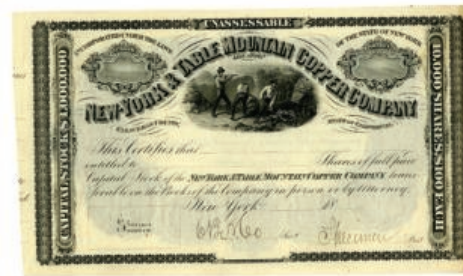 UNASSESSABLE
INCORPORATED UNDER THE LAWS OF THE STATE OF NEW YORK
NEW-YORK & TABLE MOUNTAIN COPPER COMPANY
CAPITAL STOCK $1,000,000
10,000 SHARES $100 EACH
This Certifies that
entitled to Shares of full paid
Capital Stock of the NEW YORK & TABLE MOUNTAIN COPPER COMPANY trans-
ferable on the Books of the Company in person or by Attorney.
New York 18